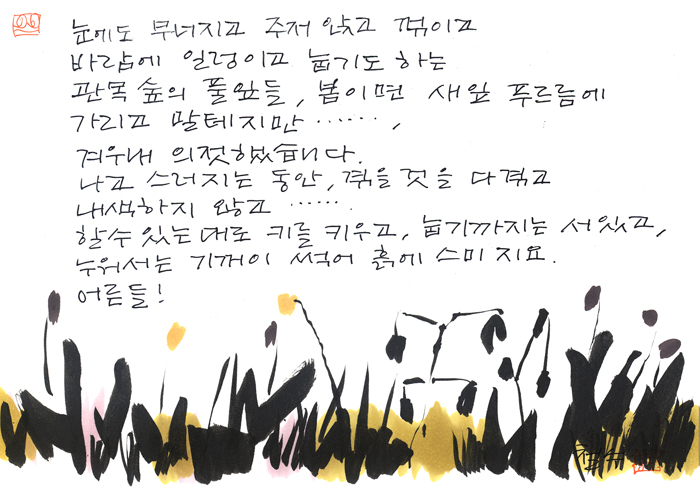 눈에도 무너지고 주저 앉고 꺾이고
바람에 일렁이고 눕기도 하는
관목 숲의 풀잎들, 봄이면 새잎 푸르름에
가리고 말테지만 ‥‥‥,
겨우내 의젓했습니다.
나고 스러지는 동안, 겪을 것을 다겪고
내색하지 않고 ‥‥‥.
할수 있는대로 키를 키우고, 눕기까지는 서있고,
누워서는 기꺼이 썩어 흙에 스미지요.
어른들!